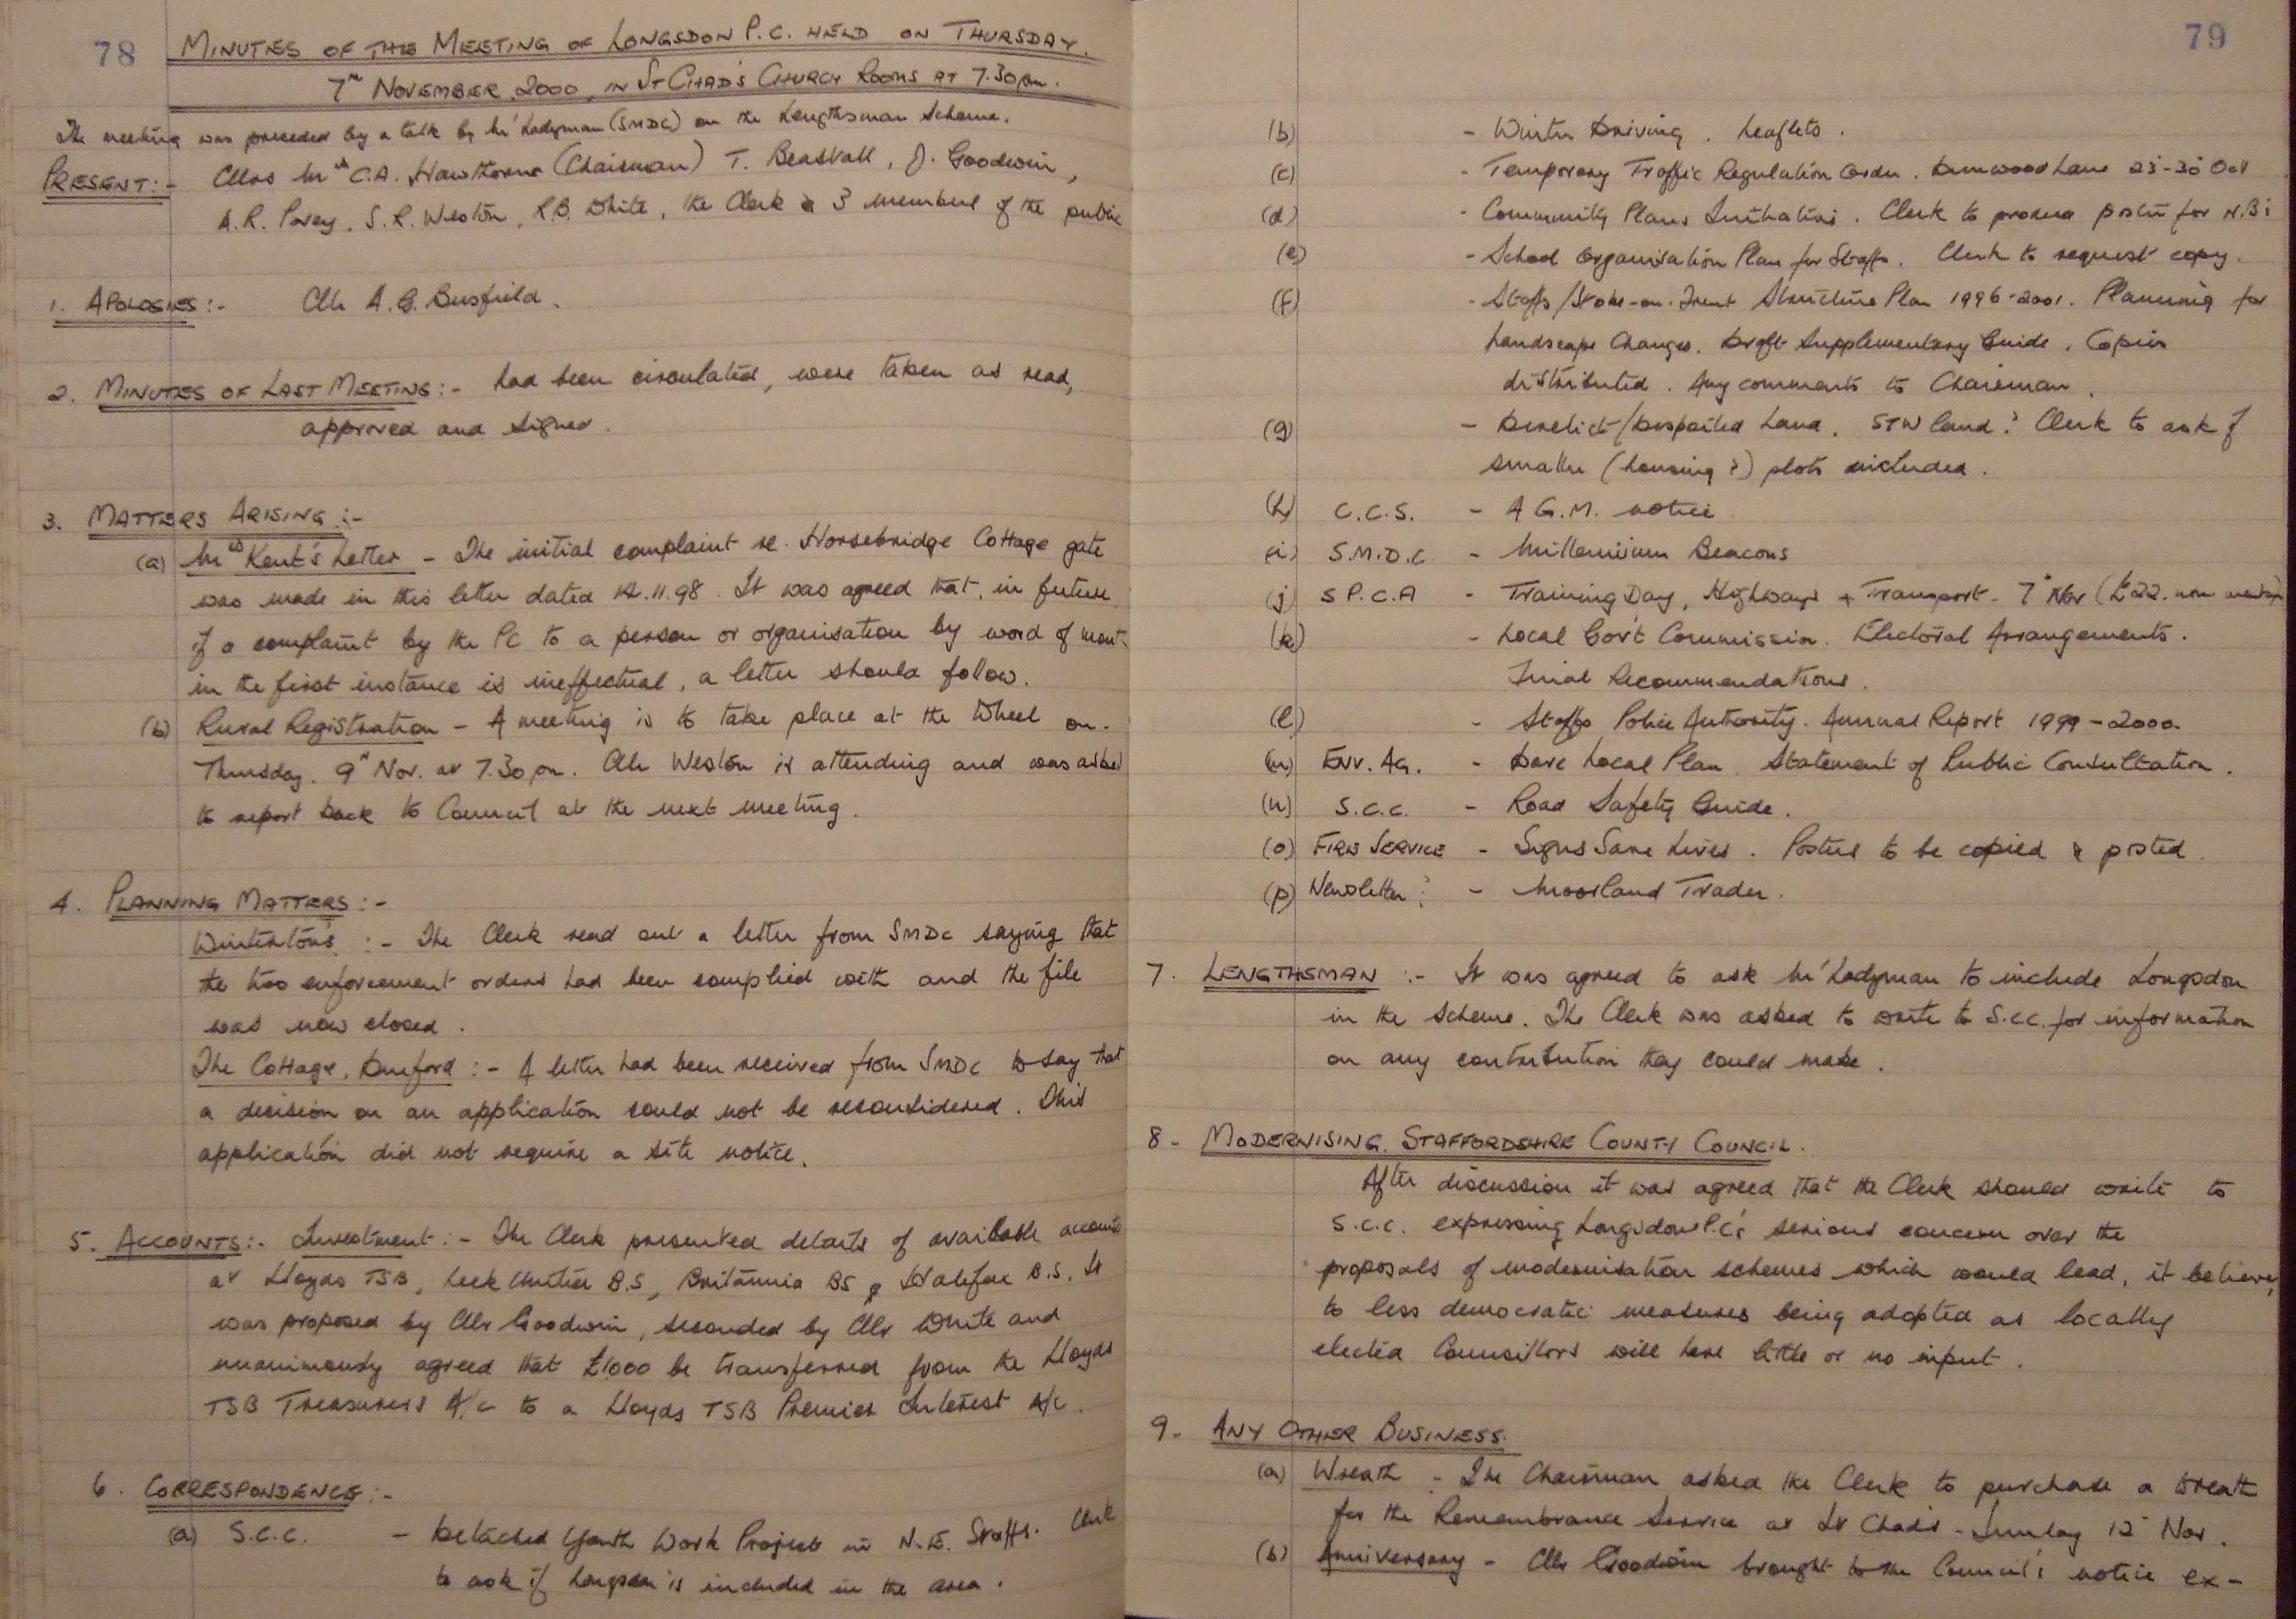 78
MINUTES OF THE MEETING OF LONGSDON P.C. HELD ON THURSDAY.
7th NOVEMBER, 2000, IN ST CHAD'S CHURCH ROOMS AT 7.30pm.
The meeting was preceded by a talk by Mr Ladyman (SMDC) on the Lengthsman Scheme.
PRESENT:- Cllrs Mrs C.A. Hawthorne (Chairman) T. Beastall, J. Goodwin,
A.R. Povey, S.R. Weston, R.B. White, the Clerk & 3 members of the public
1. APOLOGIES:- Cllr A.G. Busfield.
2. MINUTES OF LAST MEETING:- had been circulated, were taken as read,
approved and signed.
3. MATTERS ARISING:-
(a) Mrs Kent's Letter - The initial complaint re. Horsebridge Cottage gate
was made in this letter dated 12.11.98. It was agreed that, in future
if a complaint by the PC to a person or organisation by word of mouth
in the first instance is ineffectual, a letter should follow.
(b) Rural Registration - A meeting is to take place at the Wheel on
Thursday. 9th Nov. at 7.30pm. Cllr Weston is attending and was asked
to report back to Council at the next meeting.
4. PLANNING MATTERS:-
Winterton's :- The Clerk read out a letter from SMDC saying that
the two enforcement orders had been complied with and the file
was now closed.
The Cottage, Dunford :- A letter had been received from SMDC to say that
a decision on an application could not be reconsidered. This
application did not require a site notice.
5. ACCOUNTS:- Investment:- The Clerk presented details of available accounts
at Lloyds TSB, Leek United B.S, Britannia BS & Halifax B.S. It
was proposed by Cllr Goodwin, seconded by Cllr White and
unanimously agreed that £1000 be transferred from the Lloyds
TSB Treasurers A/c to a Lloyds TSB Premier Interest A/c.
6. CORRESPONDENCE:-
(a) S.C.C. - Detached Youth Work Project in N.E. Staffs. Clerk
to ask if Longsdon is included in the area.
79
(b) - Winter Driving. Leaflets.
(c) - Temporary Traffic Regulation Order. Dunwood Lane 23-30 Oct
(d) - Community Plans Initiatives. Clerk to produce poster for N.B's
(e) - School Organisation Plan for Staffs. Clerk to request copy.
(f) - Staffs/Stoke-on-Trent Structure Plan 1996-2001. Planning for
Landscape Changes. Draft Supplementary Guide. Copies
distributed. Any comments to Chairman.
(g) - Derelict/Despoiled Land. STW land? Clerk to ask if
smaller (housing?) plots included.
(h) C.C.S. - A G.M. notice
(i) S.M.D.C. - Millennium Beacons
(j) S P.C.A - Training Day, Highways + Transport - 7th Nov (£22. non
(k) - Local Gov't Commission. Electoral Arrangements.
Final Recommendations.
(l) - Staffs Police Authority. Annual Report 1999-2000.
(m) ENV. AG. - Dove Local Plan. Statement of Public Consultation.
(n) S.C.C. - Road Safety Guide.
(o) FIRE SERVICE - Signs Save Lives. Posters to be copied & posted.
(p) Newsletter? - Moorland Trader.
7. LENGTHSMAN :- It was agreed to ask Mr Ladyman to include Longsdon
in the scheme. The Clerk was asked to write to S.C.C. for information
on any contribution they could make.
8- MODERNISING STAFFORDSHIRE COUNTY COUNCIL.
After discussion it was agreed that the Clerk should write to
S.C.C. expressing Longsdon P.C's serious concern over the
proposals of modernisation schemes which would lead, it believes,
to less democratic measures being adopted as locally
elected Councillors will have little or no input.
9- ANY OTHER BUSINESS.
(a) Wreath - The Chairman asked the Clerk to purchase a wreath
for the Remembrance Service at St Chad's - Sunday 12th Nov.
(b) Anniversary - Cllr Goodwin brought to the Council's notice ex-